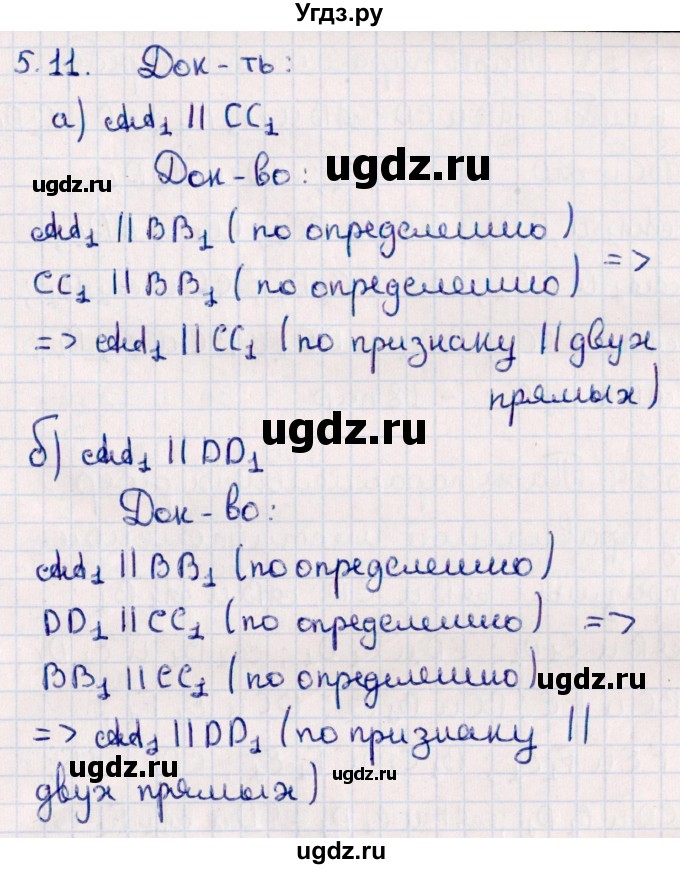 Угдз.ру
5.11. Док-ть:
а) AA₁ || CC₁
ugdz.ru
ugdz.ru
Док-во:
AA₁ || BB₁ (по определению)
=>
CC₁ || BB₁ (по определению)
=> AA₁ || CC₁ (по признаку || двух
прямых)
ugdz.ru
б) AA₁ || DD₁
Док-во:
AA₁ || BB₁ (по определению)
DD₁ || CC₁ (по определению) =>
BB₁ || CC₁ (по определению)
ugdz.ru
=> AA₁ || DD₁ (по признаку ||
ugdz.ru
ugdz.ru
двух прямых)
ugdz.ru